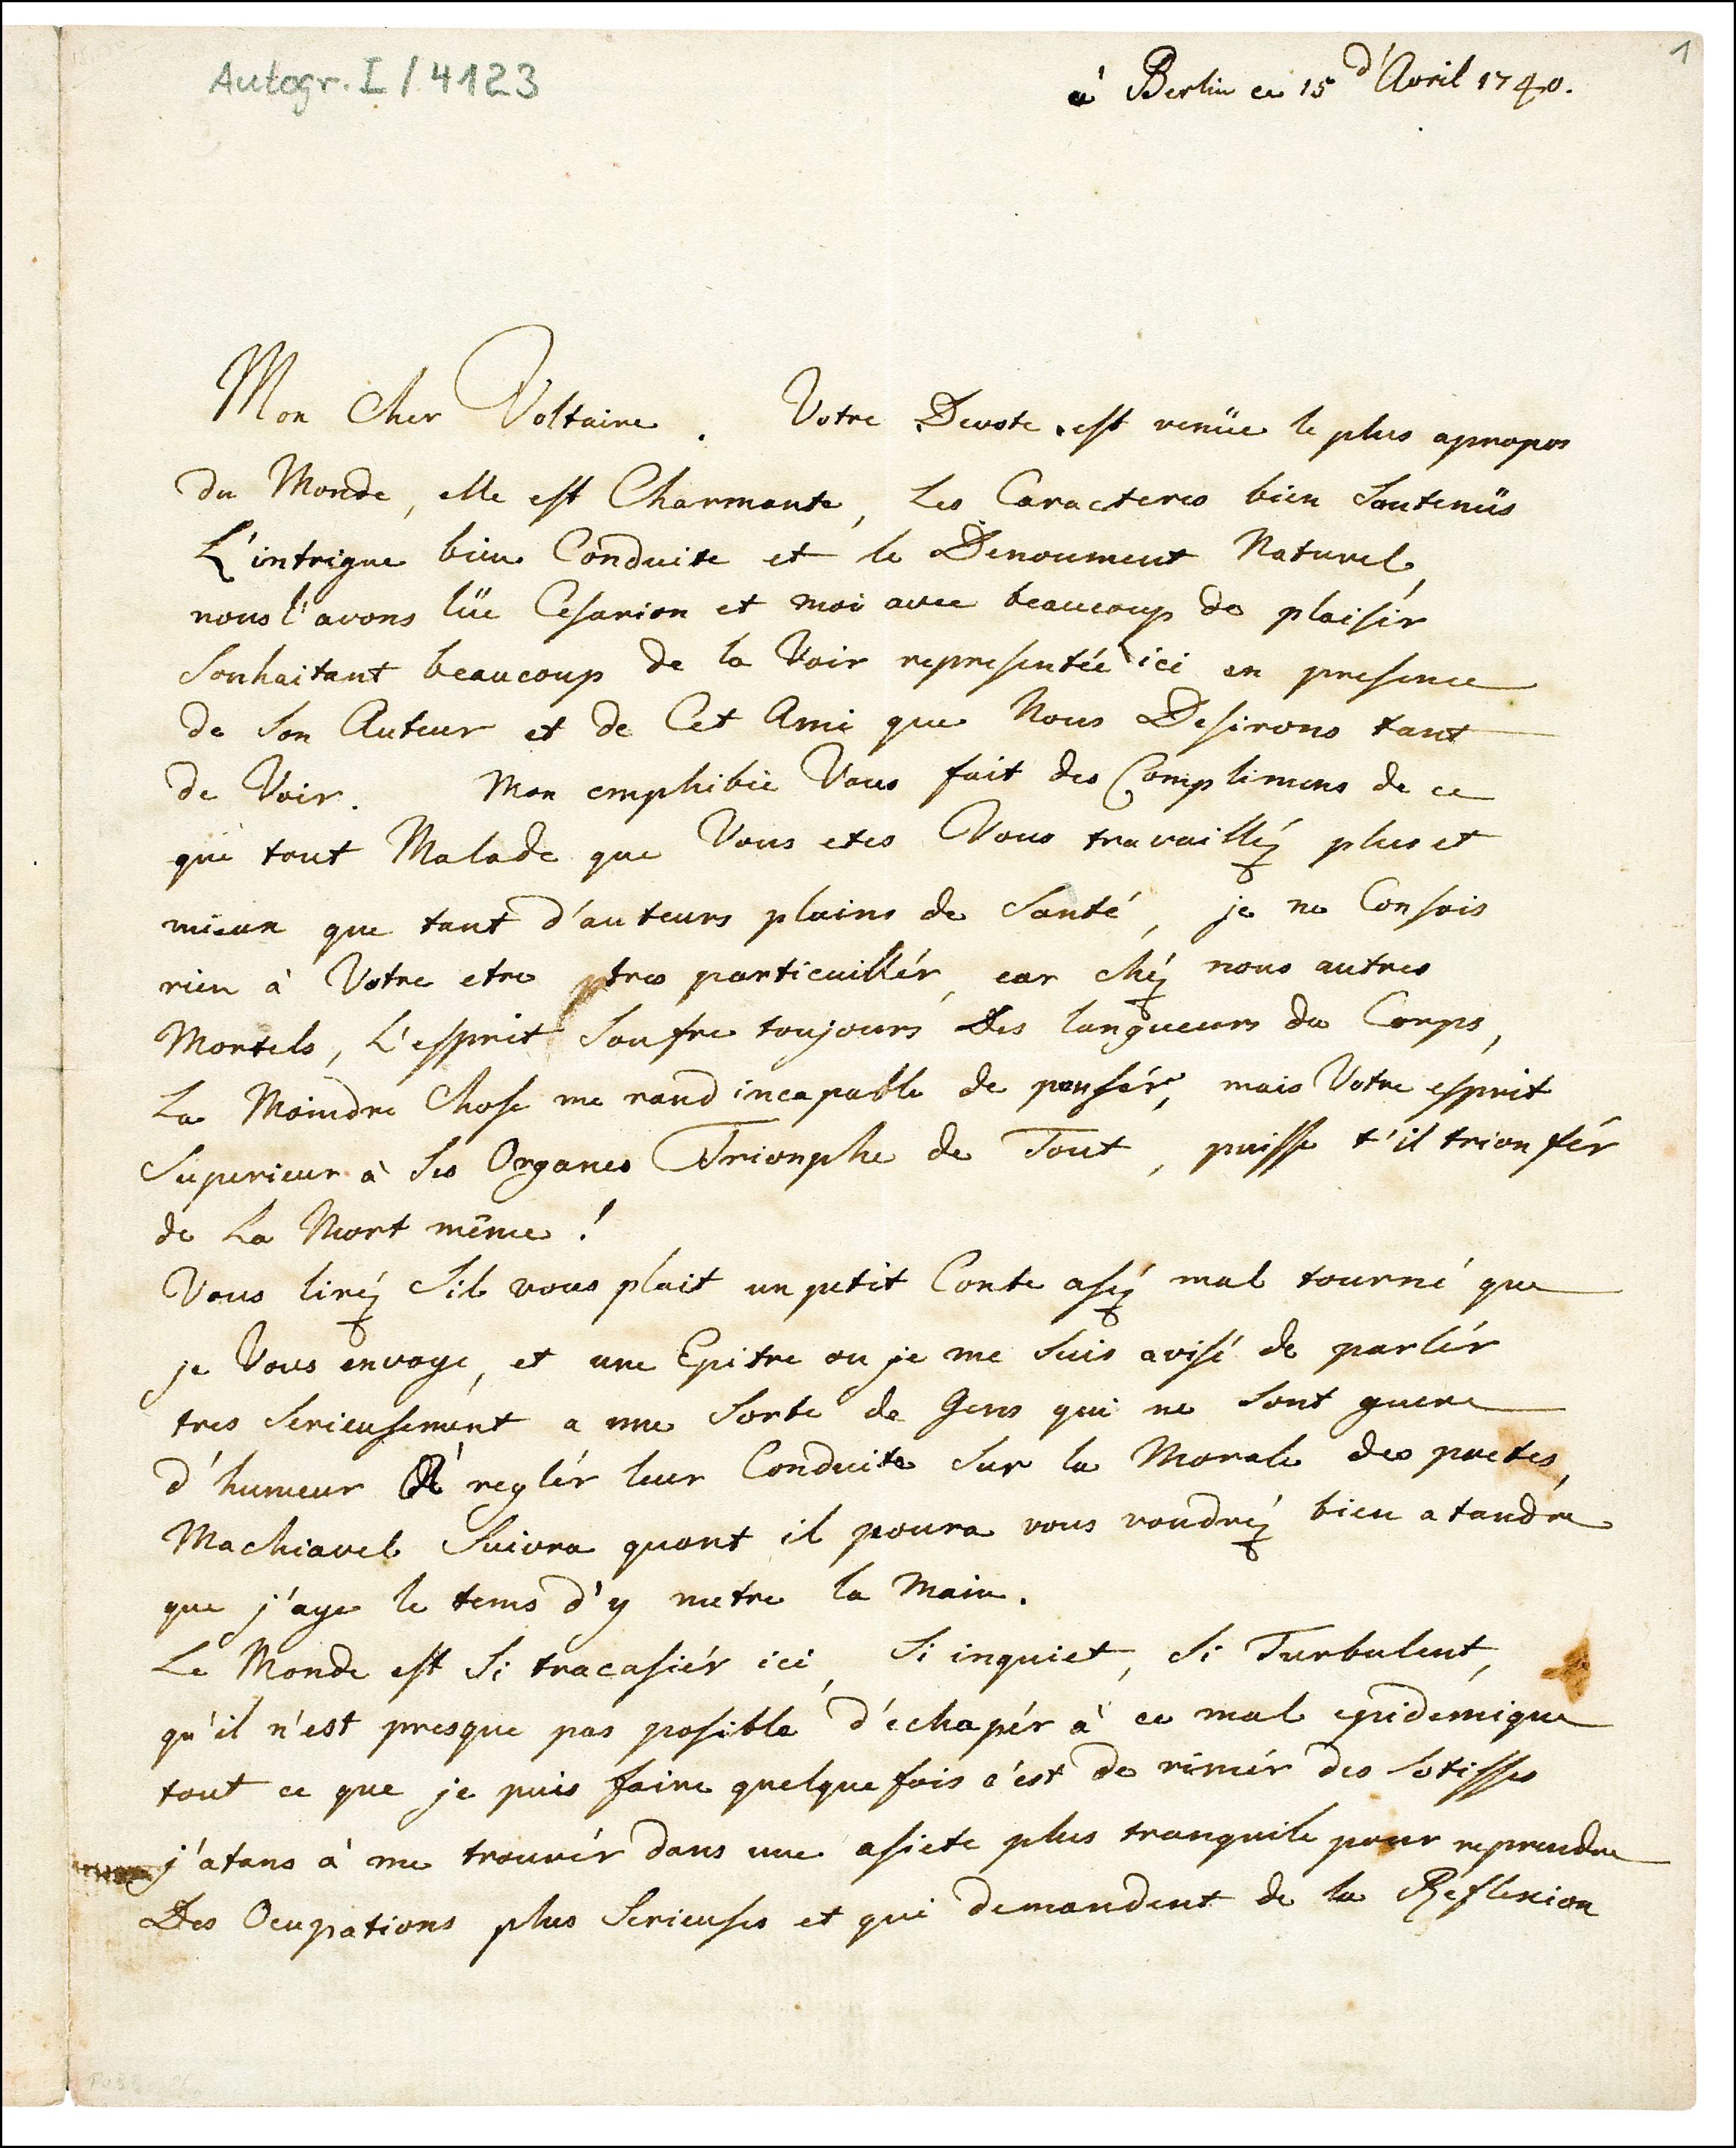 Autogr. I / 4123
1
à Berlin ce 15 d'Avril 1740.
Mon Cher Voltaire. Votre Devote est venüe le plus apropos
du Monde, elle est Charmante, Les Caracteres bien Soutenüs
L'intrigue bien Conduite et le Denoument Naturel,
nous l'avons lüe Cesarion et moi avec beaucoup de plaisir
Souhaitant beaucoup de la Voir representée ici en presence
de Son Auteur et de Cet Ami que Nous Desirons tant
de Voir. Mon emphibie Vous fait des Complimens de ce
que tout Malade que Vous etes Vous travailléz plus et
mieux que tant d'auteurs plains de Santé, je ne Consois
rien à Votre etre tres particuillér, car chéz nous autres
Mortels, L'esprit Soufre toujours Des langueurs du Corps,
La Moindre Chose me rand incapable de pensér, mais Votre esprit
Superieur à Ses Organes Trionphe de Tout, puisse t'il trionfér
de La Mort même!
Vous liréz S'il vous plait un petit Conte aséz mal tourné que
je Vous envoye, et une Epitre ou je me Suis avisé de parlér
tres Serieusement a une Sorte de Gens qui ne Sont guere
d'humeur à reglér leur Conduite Sur la Morale des poetes,
Machiavel Suivra quant il poura vous voudréz bien atandre
que j'aye le tems d'y metre la Main.
Le Monde est Si tracasiér ici, Si inquiet, Si Turbulent,
qu'il n'est presque pas posible d'échapér à ce mal epidemique
tout ce que je puis faire quelque fois c'est de rimér des Sotisses
j'atans à me trouvér dans une asiete plus tranquile pour reprendre
Des Ocupations plus Serieuses et qui demandent de la Reflexion